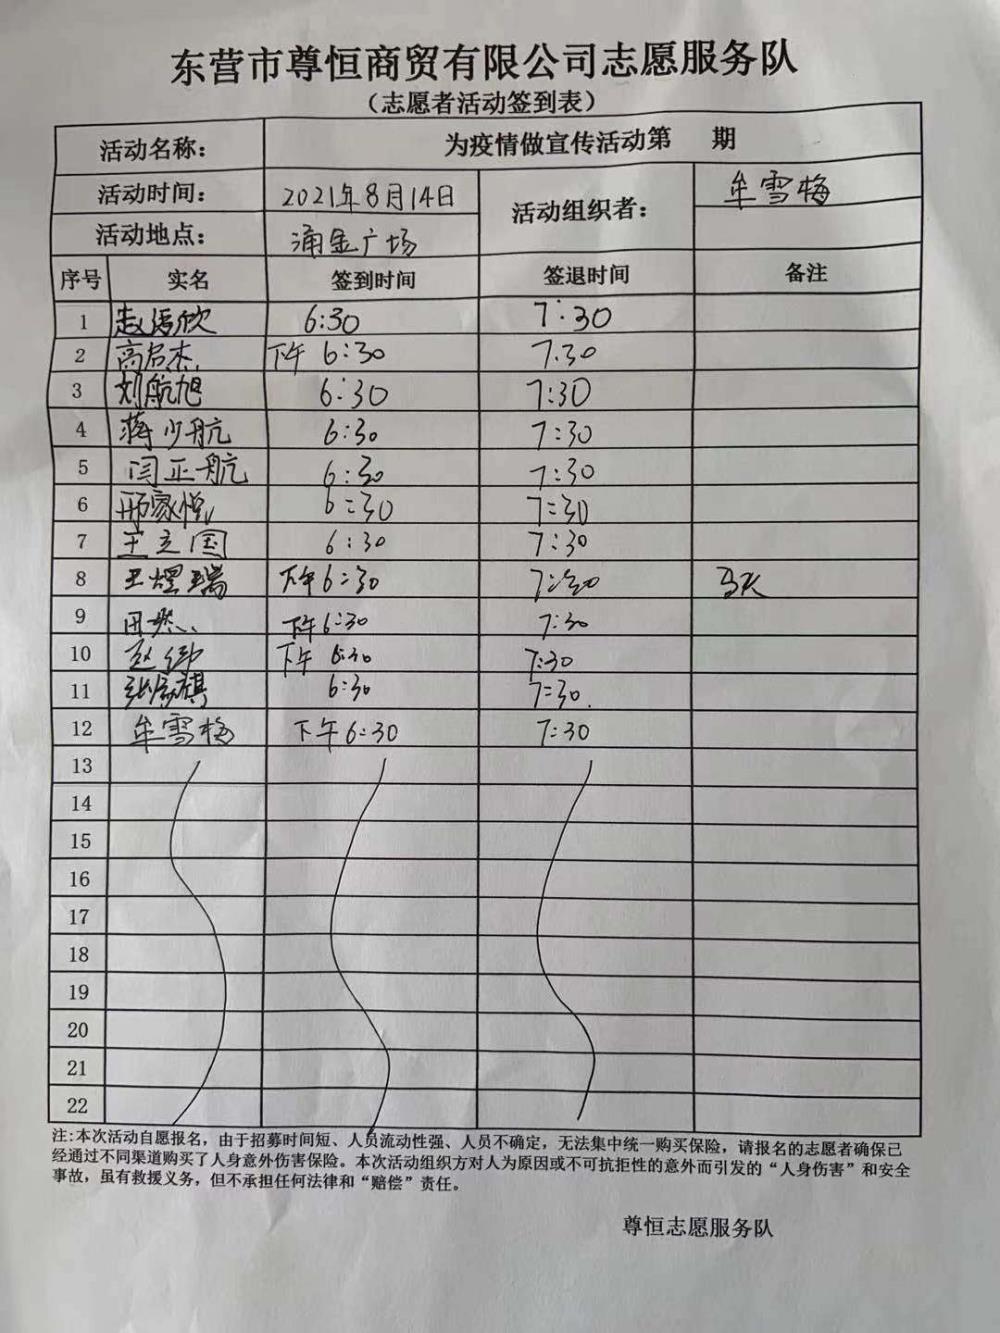 东营市尊恒商贸有限公司志愿服务队
（志愿者活动签到表）
活动名称： 为疫情做宣传活动第 期
活动时间： 2021年8月14日 活动组织者： 牟雪梅
活动地点： 涌金广场
序号 实名 签到时间 签退时间 备注
1 赵语欣 6:30 7:30
2 高启杰 下午 6:30 7.30
3 刘航旭 6:30 7:30
4 蒋少航 6:30 7:30
5 闫正航 6:30 7:30
6 邢家悦 6:30 7:30
7 王立国 6:30 7:30
8 王煜瑞 下午6:30 7:30
9 田 下午6:30 7:30
10 赵 下午 6:30 7:30
11 张 旗 6:30 7:30.
12 牟雪梅 下午6:30 7:30
13
14
15
16
17
18
19
20
21
22
注:本次活动自愿报名，由于招募时间短、人员流动性强、人员不确定，无法集中统一购买保险，请报名的志愿者确保已
经通过不同渠道购买了人身意外伤害保险。本次活动组织方对人为原因或不可抗拒性的意外而引发的“人身伤害”和安全
事故，虽有救援义务，但不承担任何法律和“赔偿”责任。
尊恒志愿服务队